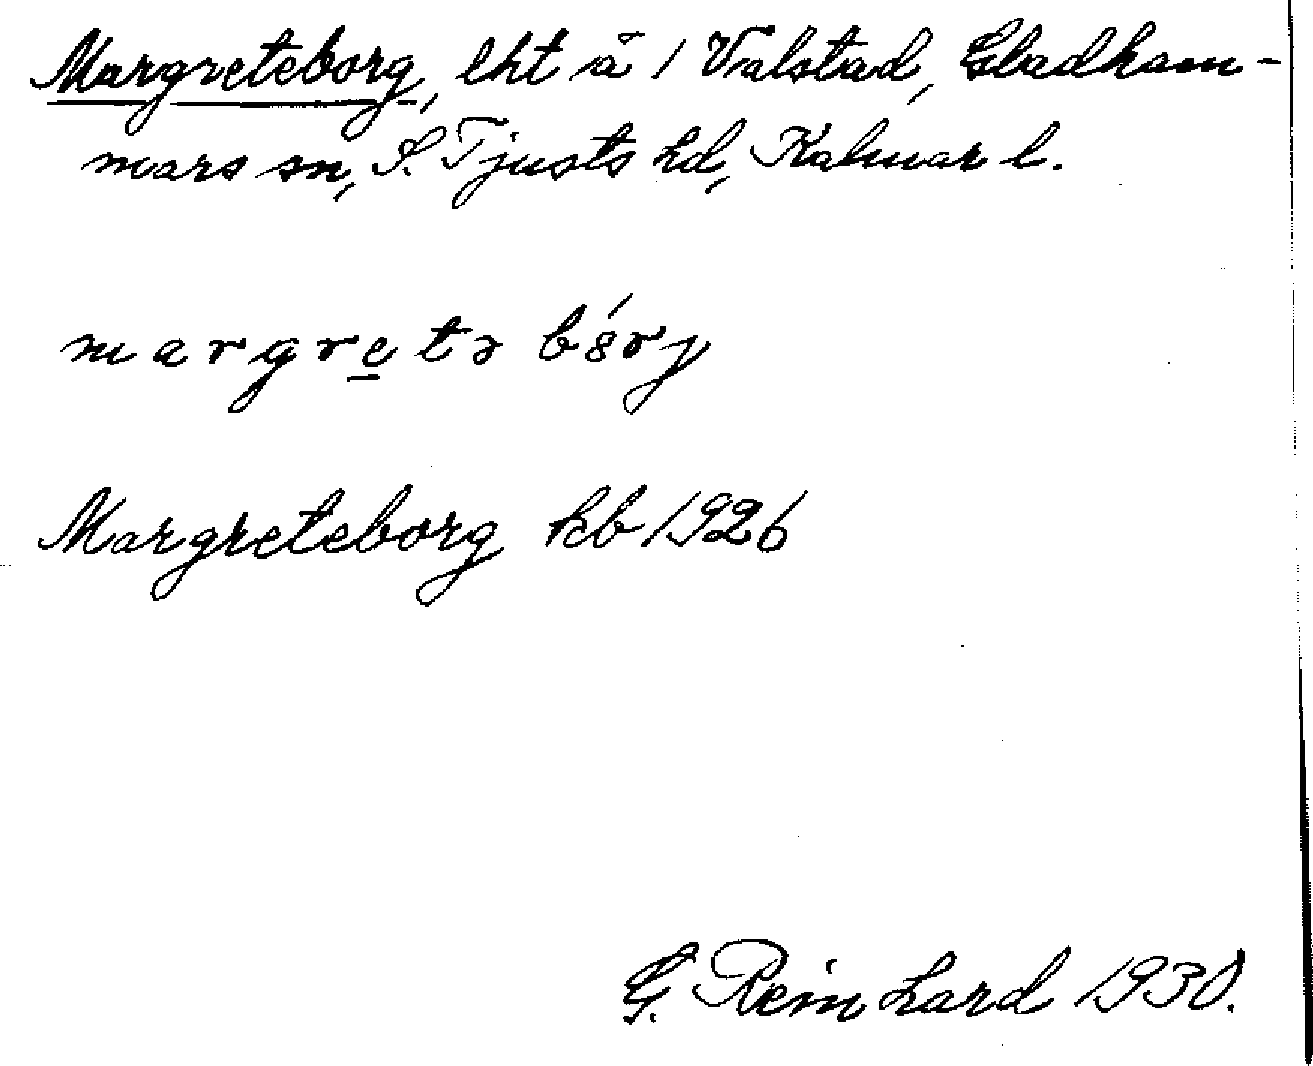 Margreteborg, lht å 1 Valstad, Gladham-
mars sn, S. Tjusts hd, Kalmar l.
margretə bȣ́rj
Margreteborg kb 1926
G. Reinhard 1930.